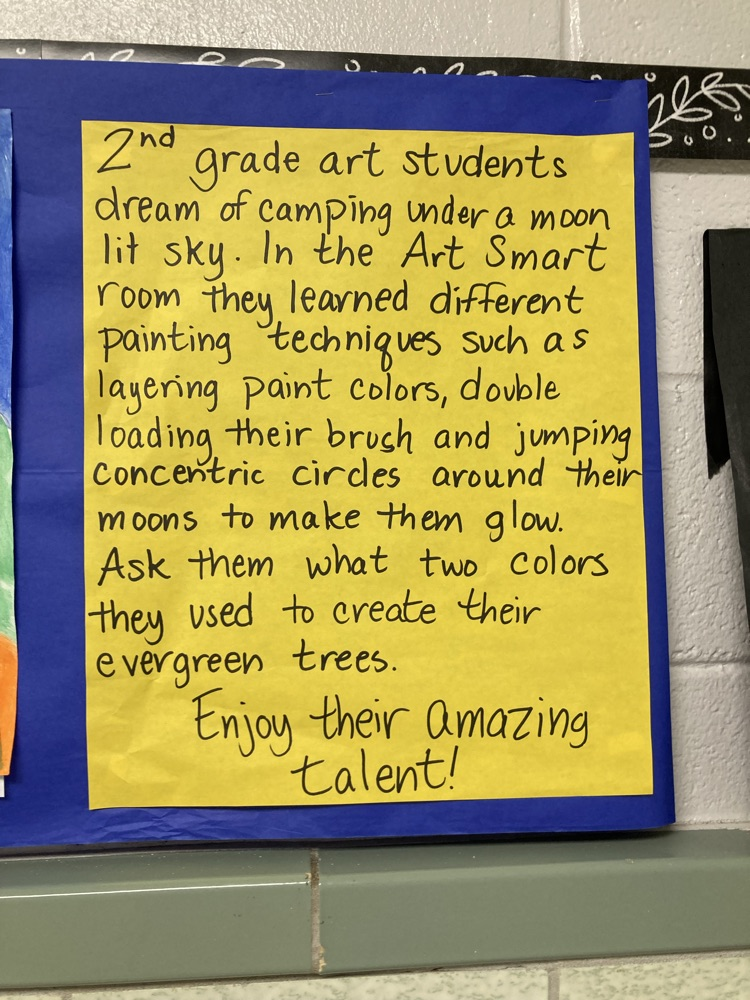 2nd grade art students
dream of camping under a moon
lit sky. In the Art Smart
room they learned different
painting techniques such as
layering paint colors, double
loading their brush and jumping
concentric circles around their
moons to make them glow.
Ask them what two colors
they used to create their
evergreen trees.
Enjoy their amazing
talent!